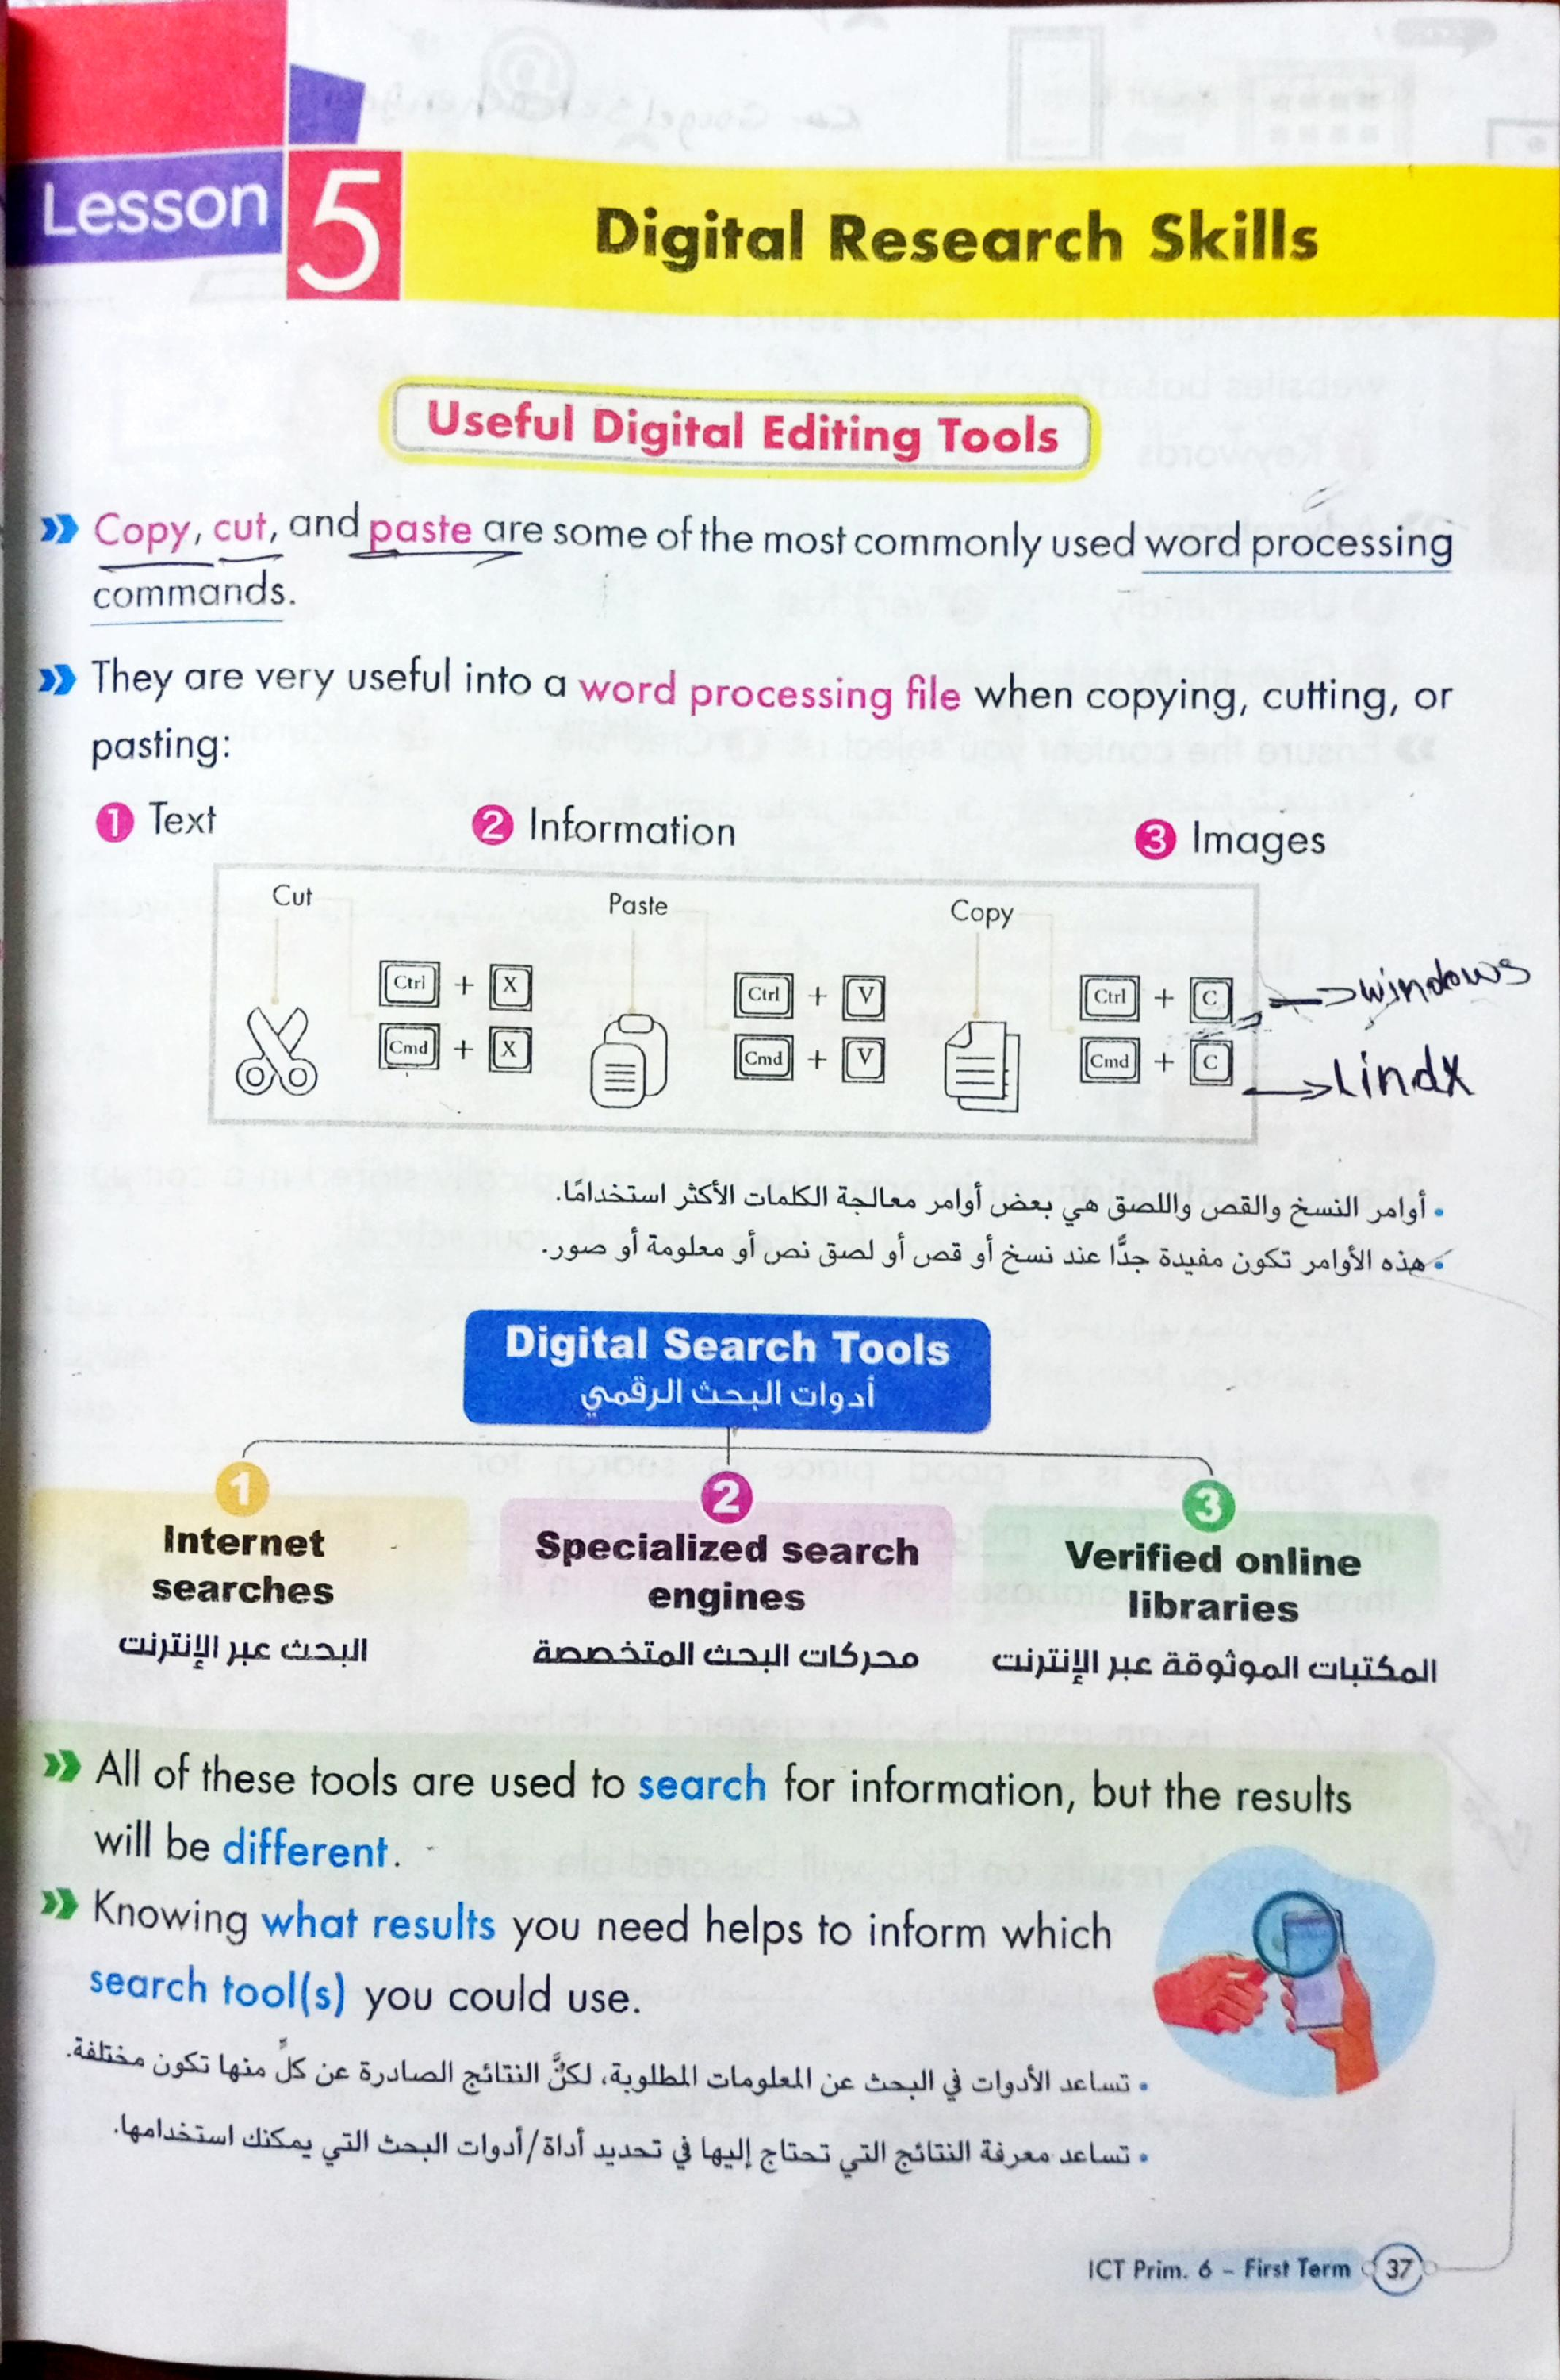 Lesson 5
Digital Research Skills
Useful Digital Editing Tools
Copy, cut, and paste are some of the most commonly used word processing
commands.
They are very useful into a word processing file when copying, cutting, or
pasting:
1 Text 2 Information 3 Images
Cut Paste Copy
Ctrl + X Ctrl + V Ctrl + C → windows
Cmd + X Cmd + V Cmd + C → Lindx
• أوامر النسخ والقص واللصق هي بعض أوامر معالجة الكلمات الأكثر استخدامًا.
• هذه الأوامر تكون مفيدة جدًّا عند نسخ أو قص أو لصق نص أو معلومة أو صور.
Digital Search Tools
أدوات البحث الرقمي
1 2 3
Internet searches
البحث عبر الإنترنت
Specialized search engines
محركات البحث المتخصصة
Verified online libraries
المكتبات الموثوقة عبر الإنترنت
All of these tools are used to search for information, but the results
will be different.
Knowing what results you need helps to inform which
search tool(s) you could use.
• تساعد الأدوات في البحث عن المعلومات المطلوبة، لكنَّ النتائج الصادرة عن كلٍّ منها تكون مختلفة.
• تساعد معرفة النتائج التي تحتاج إليها في تحديد أداة/أدوات البحث التي يمكنك استخدامها.
ICT Prim. 6 – First Term 37